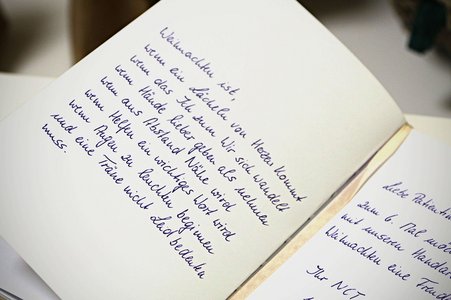 Weihnachten ist,
wenn ein Lächeln von Herzen kommt
wenn das Ich zum Wir sich wandelt
wenn Hände lieber geben als nehmen
wenn aus Abstand Nähe wird
wenn Helfen ein wichtiges Wort wird
wenn Augen zu leuchten beginnen
und eine Träne nicht Leid bedeuten
muss.
Liebe Patientin
zum 6. Mal möc
mit unseren Handar
Weihnachten eine Freud
Ihr NCT